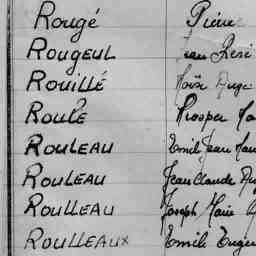 Rougé Pierre
ROUGEUL Jean René
ROUILLÉ
ROULE Prosper
ROULEAU Emile Jean
ROULEAU Jean Claude
ROULLEAU Joseph Marie
ROULLEAUX Emile Eugen